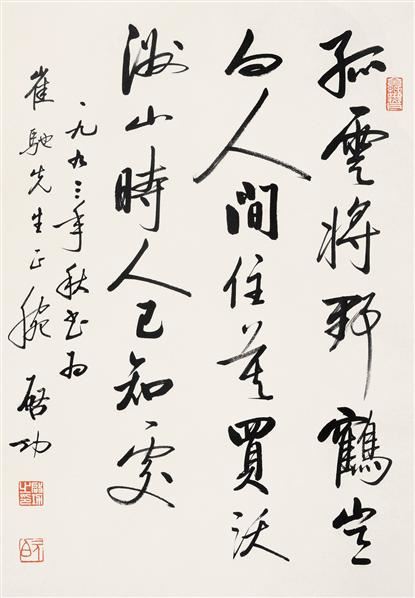 孤雲將野鶴豈
向人間住莫買沃
洲山時人已知處
一九九三年秋書為
崔馳先生正腕 啓功